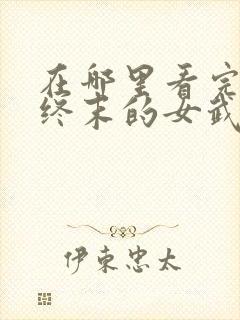 在哪里看完
终末的女武
伊東忠太